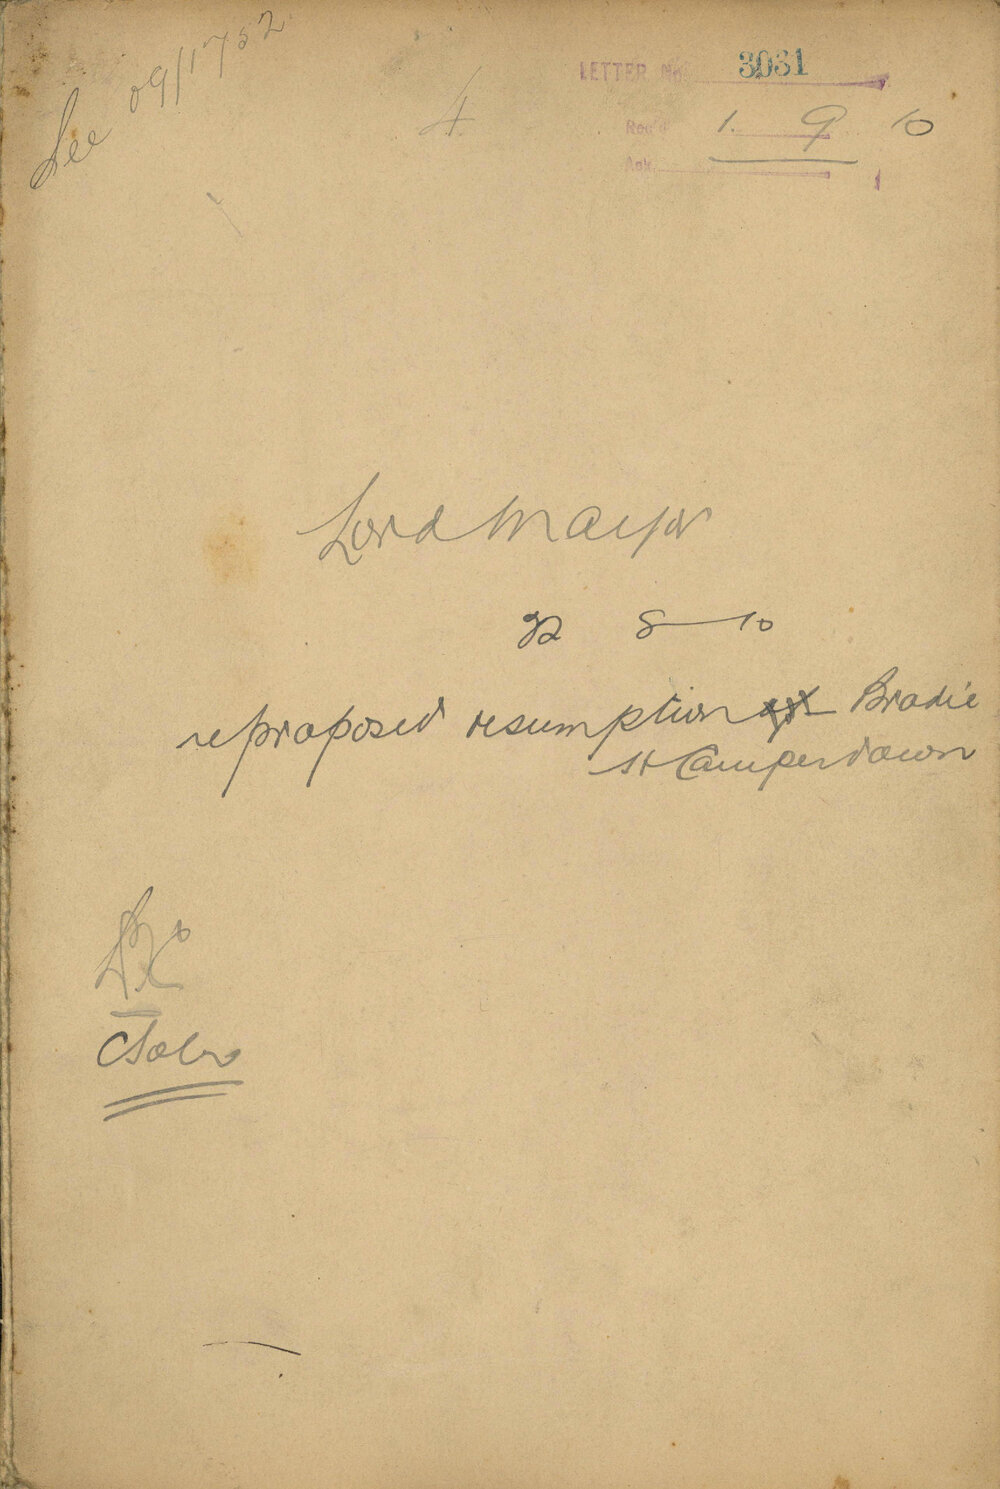 See 09/1752
4
LETTER No. 3031
Rec'd 1. 9 10
Ack.
Lord Mayor
8 10
re proposed resumption Brodie
St Camperdown